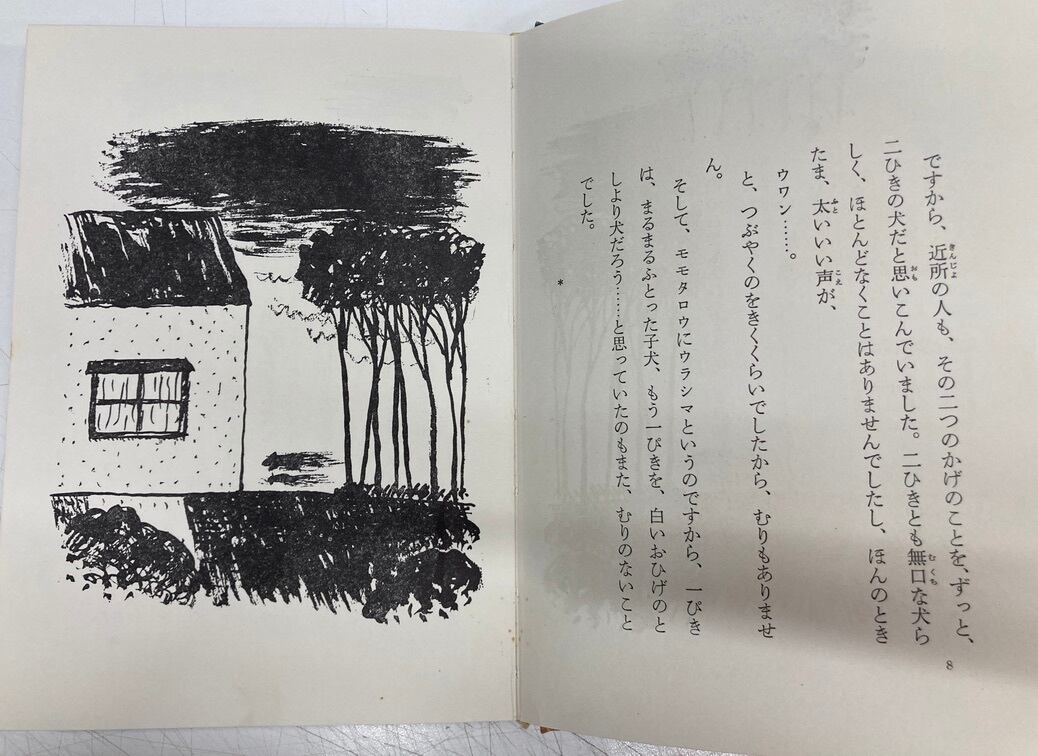 ですから、近所の人も、その二つのかげのことを、ずっと、
二ひきの犬だと思いこんでいました。二ひきとも無口な犬ら
しく、ほとんどなくことはありませんでしたし、ほんのとき
たま、太いいい声が、
ウワン……。
と、つぶやくのをきくくらいでしたから、むりもありませ
ん。
そして、モモタロウにウラシマというのですから、一ぴき
は、まるまるふとった子犬、もう一ぴきを、白いおひげのと
しより犬だろう……と思っていたのもまた、むりのないこと
でした。
*
8